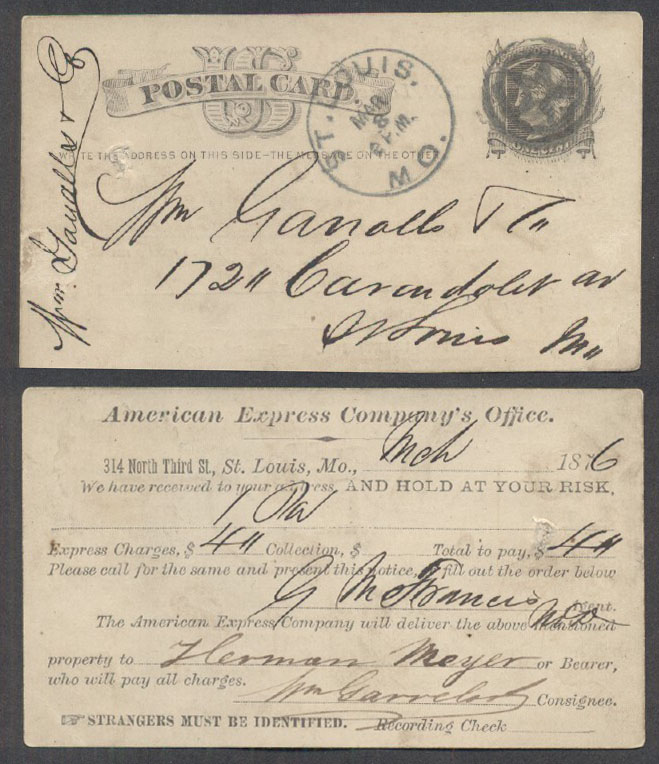 U S
POSTAL CARD.
WRITE THE ADDRESS ON THIS SIDE—THE MESSAGE ON THE OTHER
ST. LOUIS.
MAR
8
P.M.
MO.
Wm
1724 Carondolet av
St Louis Mo
American Express Company's Office.
314 North Third St., St. Louis, Mo., Mch 1876
We have received to your address, AND HOLD AT YOUR RISK,
1
Express Charges, $ 40 Collection, $ Total to pay, $ 40
Please call for the same and present this notice, & fill out the order below
G McFrancis Agent.
The American Express Company will deliver the above mentioned
property to Herman Meyer or Bearer,
who will pay all charges.
Wm Consignee.
☞ STRANGERS MUST BE IDENTIFIED. Recording Check